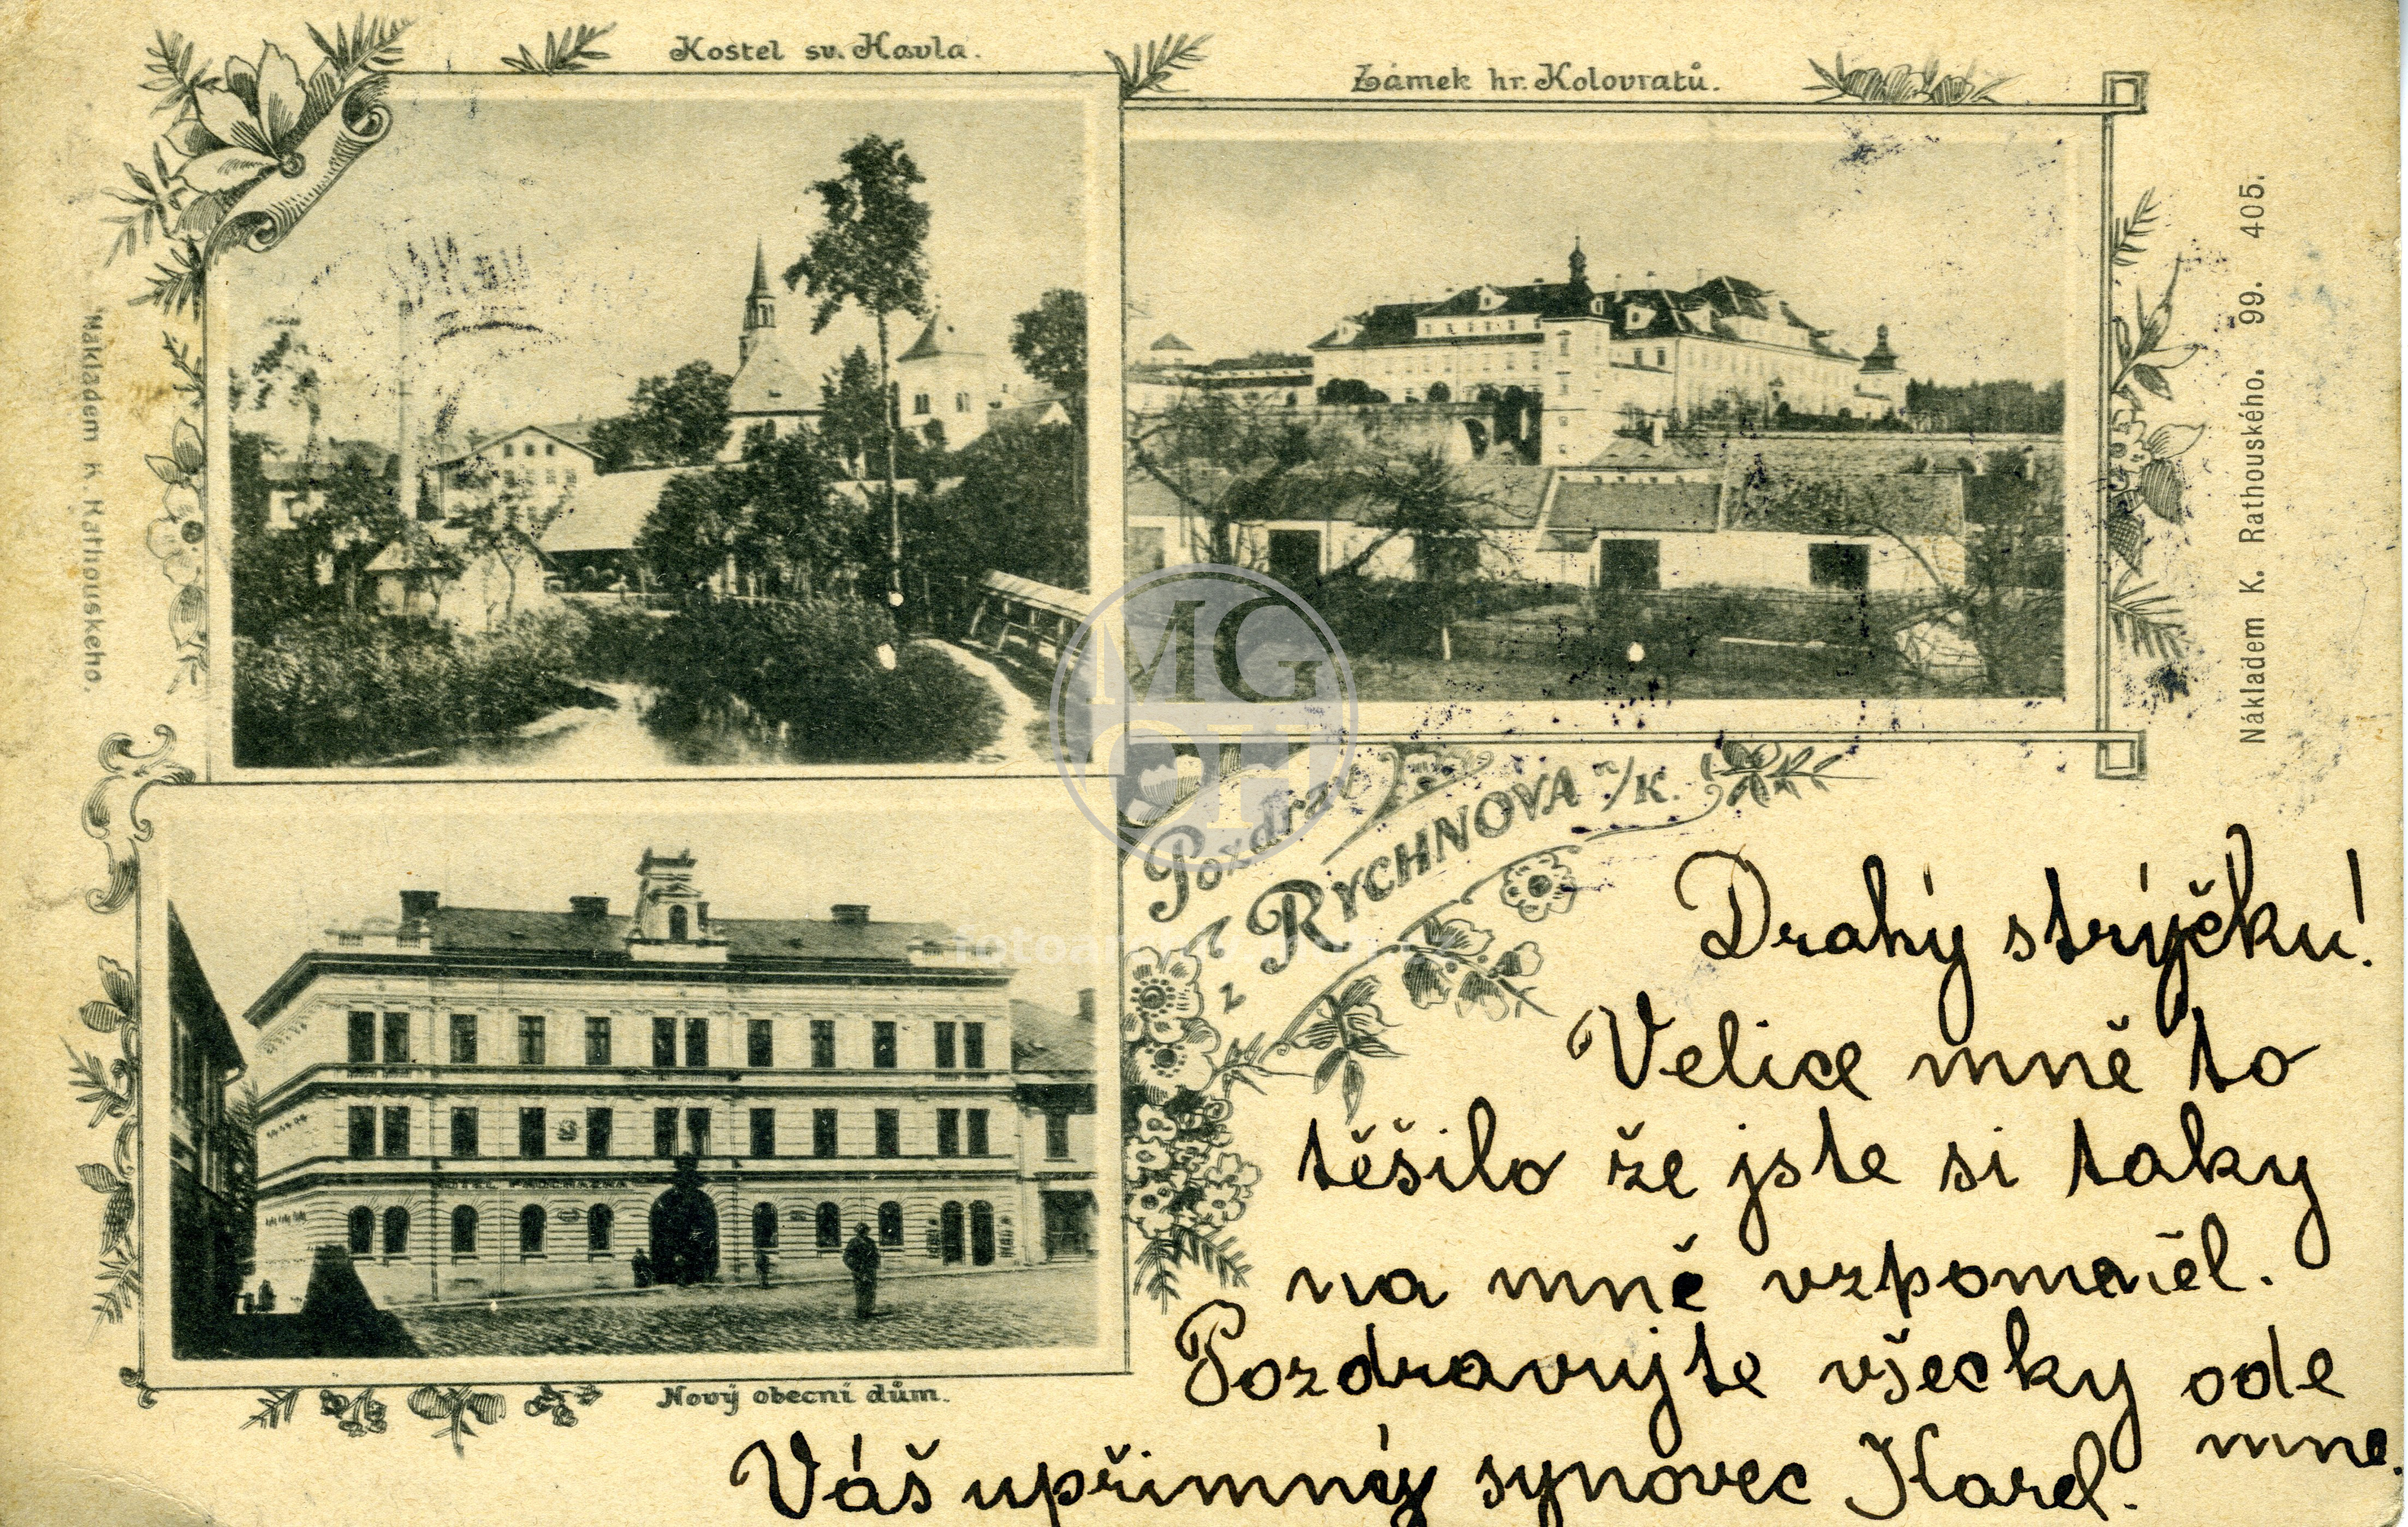 Kostel sv. Havla.
Zámek hr. Kolovratů.
Nákladem K. Rathouského.
Nákladem K. Rathouského. 99. 405.
MG
OH
Pozdrav
z RYCHNOVA n/K.
HOTEL PROCHAZKA
Nový obecní dům.
Drahý strýčku!
Velice mně to
těšilo že jste si taky
na mně vzpomněl.
Pozdravujte všecky ode
mne.
Váš upřimný synovec Karel.